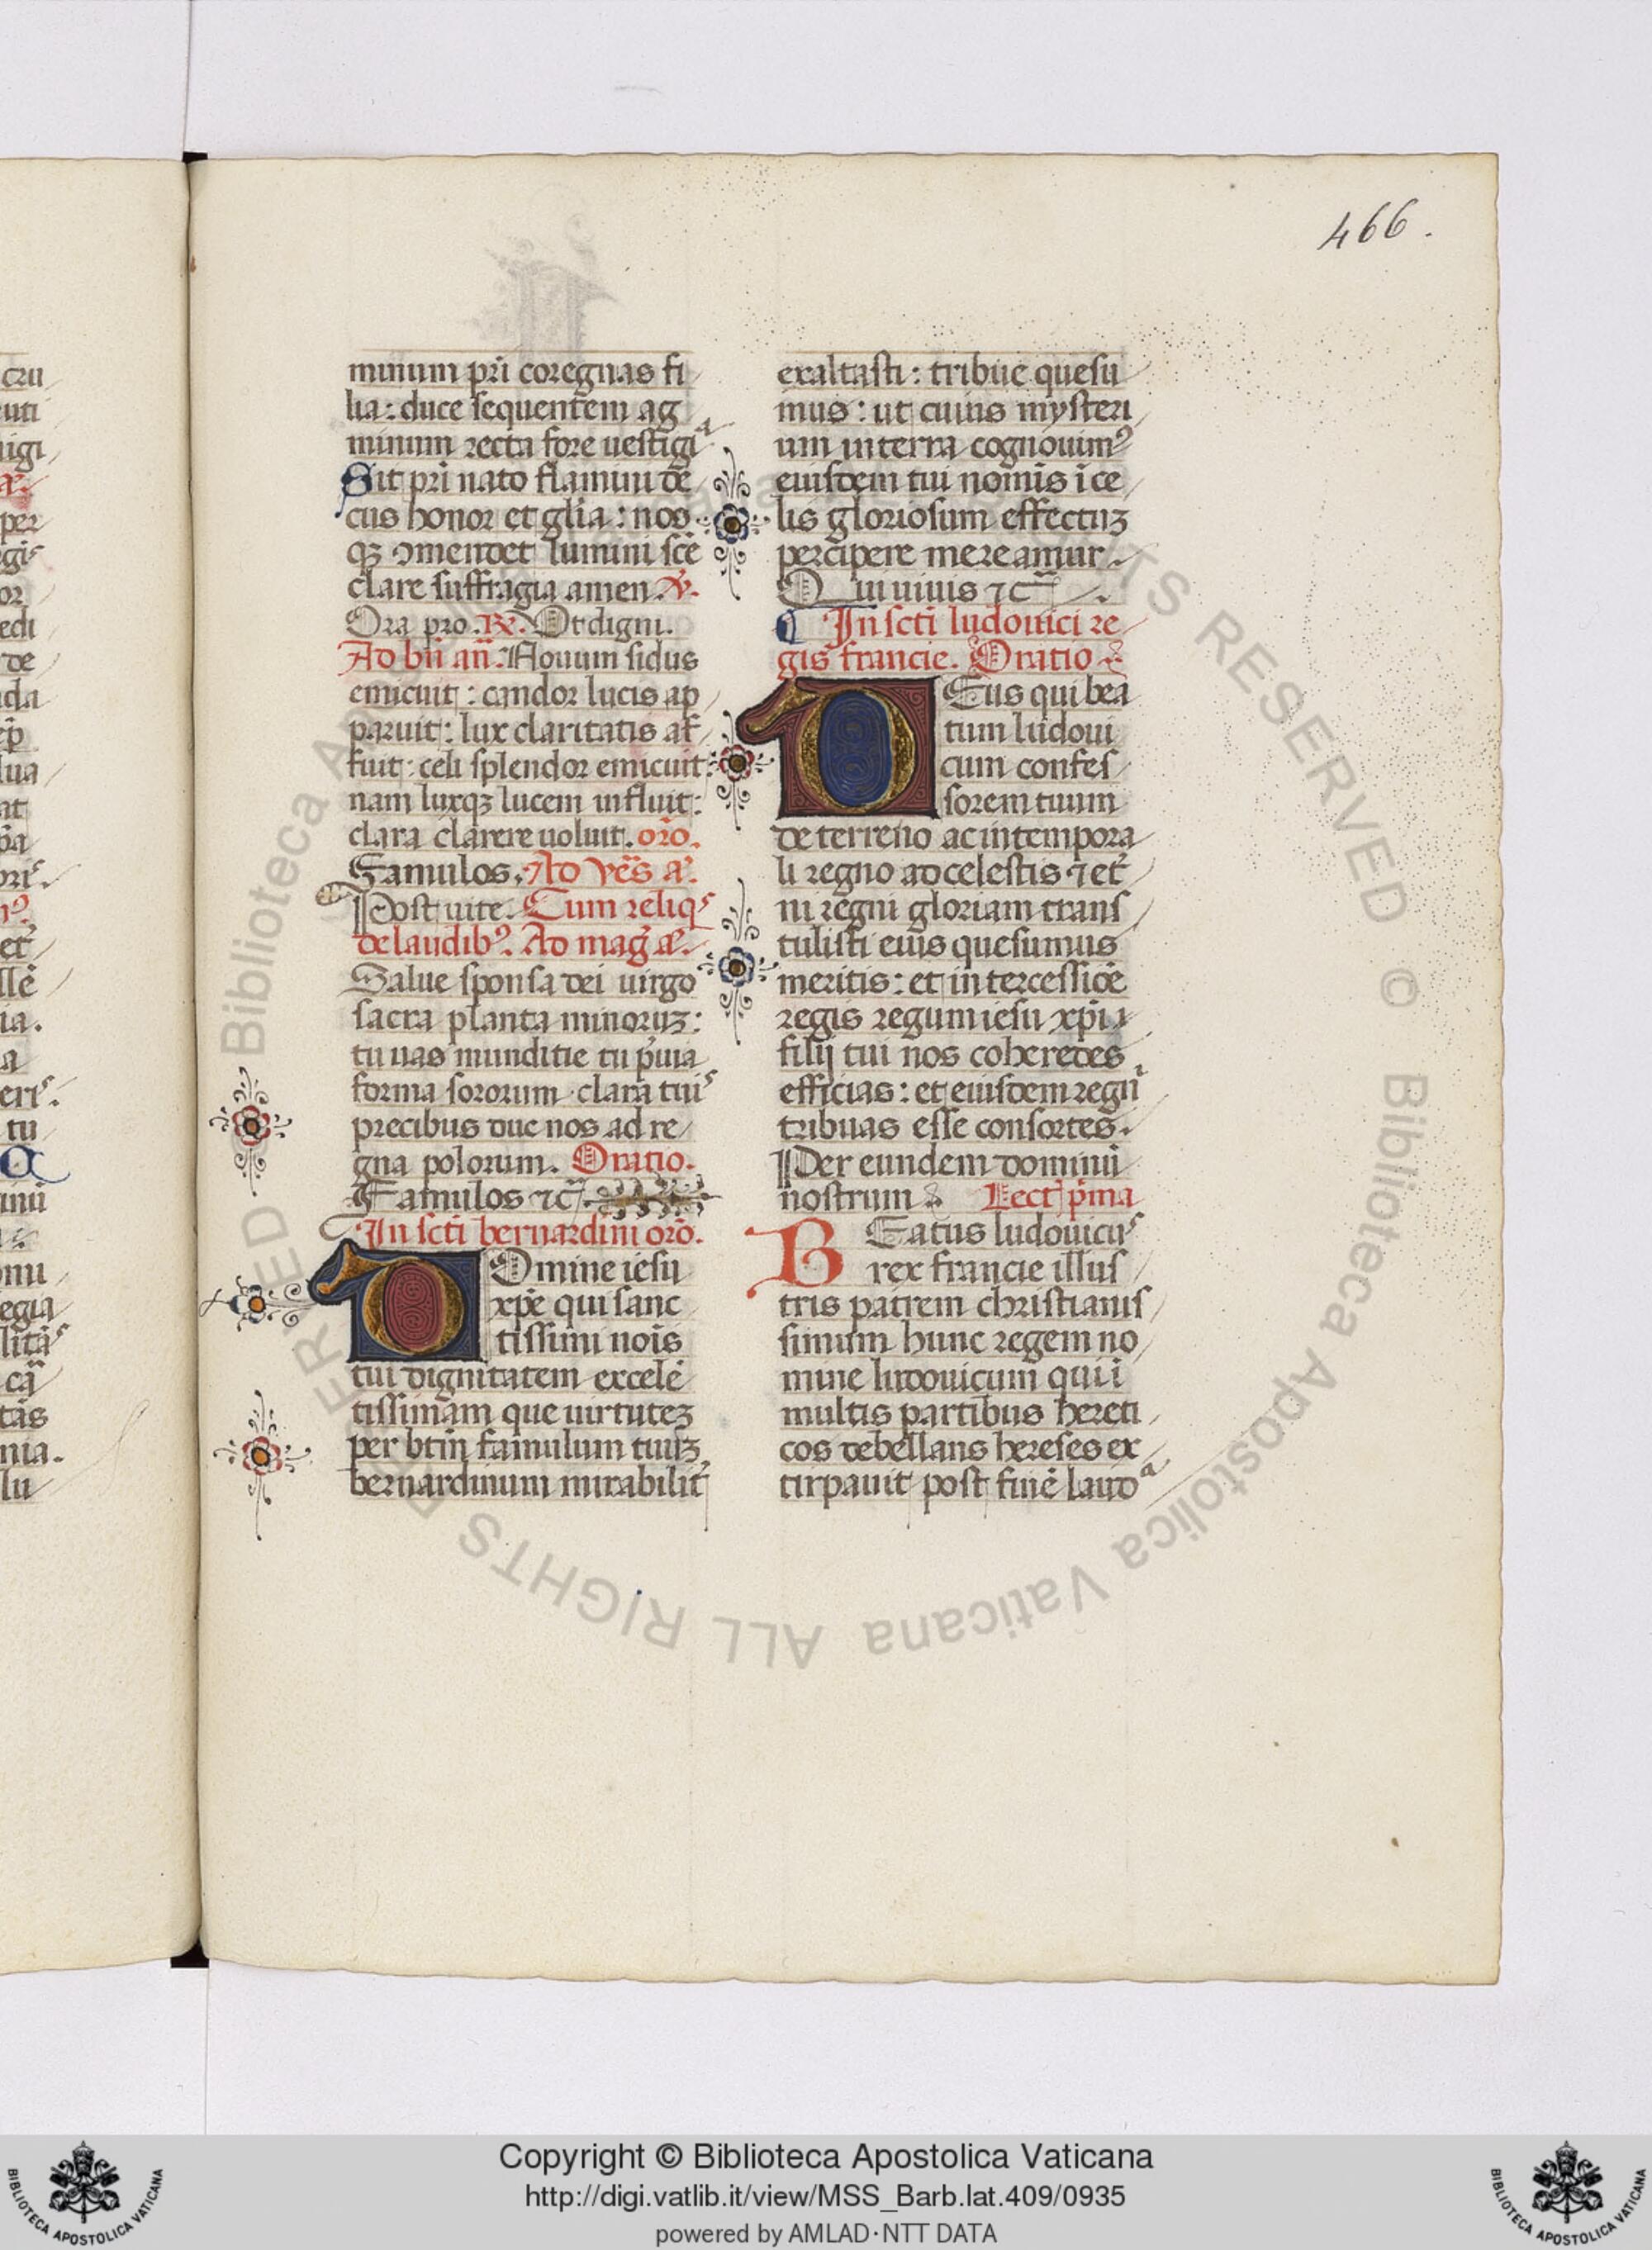 466.
minum pri coregnas fi
lia: duce sequentem ag
minum recta fore uestigia
Sit pri nato flamini de
cus honor et glia: nos
qz ꝯmendet lumini sce
clare suffragia amen. V.
Ora pro. R. Ut digni.
Ad bn an. Nouum sidus
emicuit: candor lucis ap
paruit: lux claritatis af
fuit: celi splendor emicuit:
nam luxqz lucem influit:
clara clarere uoluit. oro.
Famulos. Ad ves a.
Post uite. Cum reliqs
de laudib9. Ad mag a.
Salue sponsa dei uirgo
sacra planta minoruz:
tu uas munditie tu pruia
forma sororum clara tuis
precibus duc nos ad re
gna polorum. Oratio.
Famulos ⁊c.
In scti bernardini oro.
Domine iesu
xpe qui sanc
tissimi nois
tui dignitatem excele
tissimam que uirtutez
per btm famulum tuuz
bernardinum mirabilit
exaltasti: tribue quesu
mus: ut cuius mysteri
um in terra cognouim9
eiusdem tui nomis i ce
lis gloriosum effectuz
percipere mereamur.
Qui uiuis ⁊c.
In scti ludouici re
gis francie. Oratio
Deus qui bea
tum ludoui
cum confes
sorem tuum
de terreno ac intempora
li regno ad celestis ⁊ et
ni regni gloriam trans
tulisti eius quesumus
meritis: et intercessioe
regis regum iesu xpi
filij tui nos coheredes
efficias: et eiusdem regni
tribuas esse consortes.
Per eundem dominu
nostrum Lect pma
Beatus ludouicus
rex francie illus
tris patrem christianis
simum hunc regem no
mine ludouicum qui i
multis partibus hereti
cos debellans hereses ex
tirpauit post fine lauda
Copyright © Biblioteca Apostolica Vaticana
http://digi.vatlib.it/view/MSS_Barb.lat.409/0935
powered by AMLAD·NTT DATA